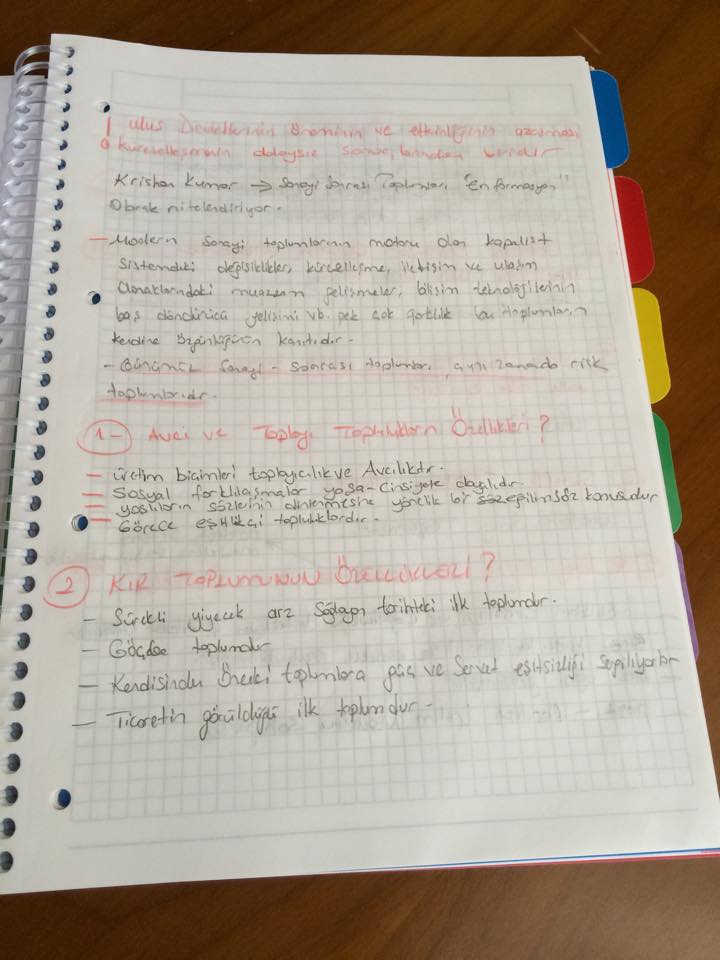 ! ulus Devletlerinin öneminin ve etkinliğinin azalması
küreselleşmenin dolaysız sonuçlarından biridir
Krishan Kumar → Sanayi Sonrası Toplumları "enformasyon"
Olarak nitelendiriyor.
- Modern Sanayi toplumlarının motoru olan kapalist
Sistemdeki değişiklikler, küreselleşme, iletişim ve ulaşım
Olanaklarındaki muazzam gelişmeler, bilişim teknolojilerinin
baş döndürücü gelişimi vb. pek çok farklılık bu toplumların
kendine özgünlüğünün kanıtıdır.
- Günümüz Sanayi - Sonrası toplumları, aynı zamanda risk
toplumlarıdır.
1- Avcı ve Toplayı Toplulukların Özellikleri?
- Üretim biçimleri toplayıcılık ve Avcılıktır.
- Sosyal farklılaşmalar yaşa-Cinsiyete dayalıdır.
- yaşlıların sözlerinin dinlenmesine yönelik bir eğilim söz konusudur
- Görece eşitlikçi topluluklardır.
2 KIR TOPLUMUNUN ÖZELLİKLERİ?
- Sürekli yiyecek arz Sağlayan tarihteki ilk toplumdur.
- Göçebe toplumdur
- Kendisinden Önceki toplumlara güç ve Servet eşitsizliği
- Ticaretin görüldüğü ilk toplumdur.